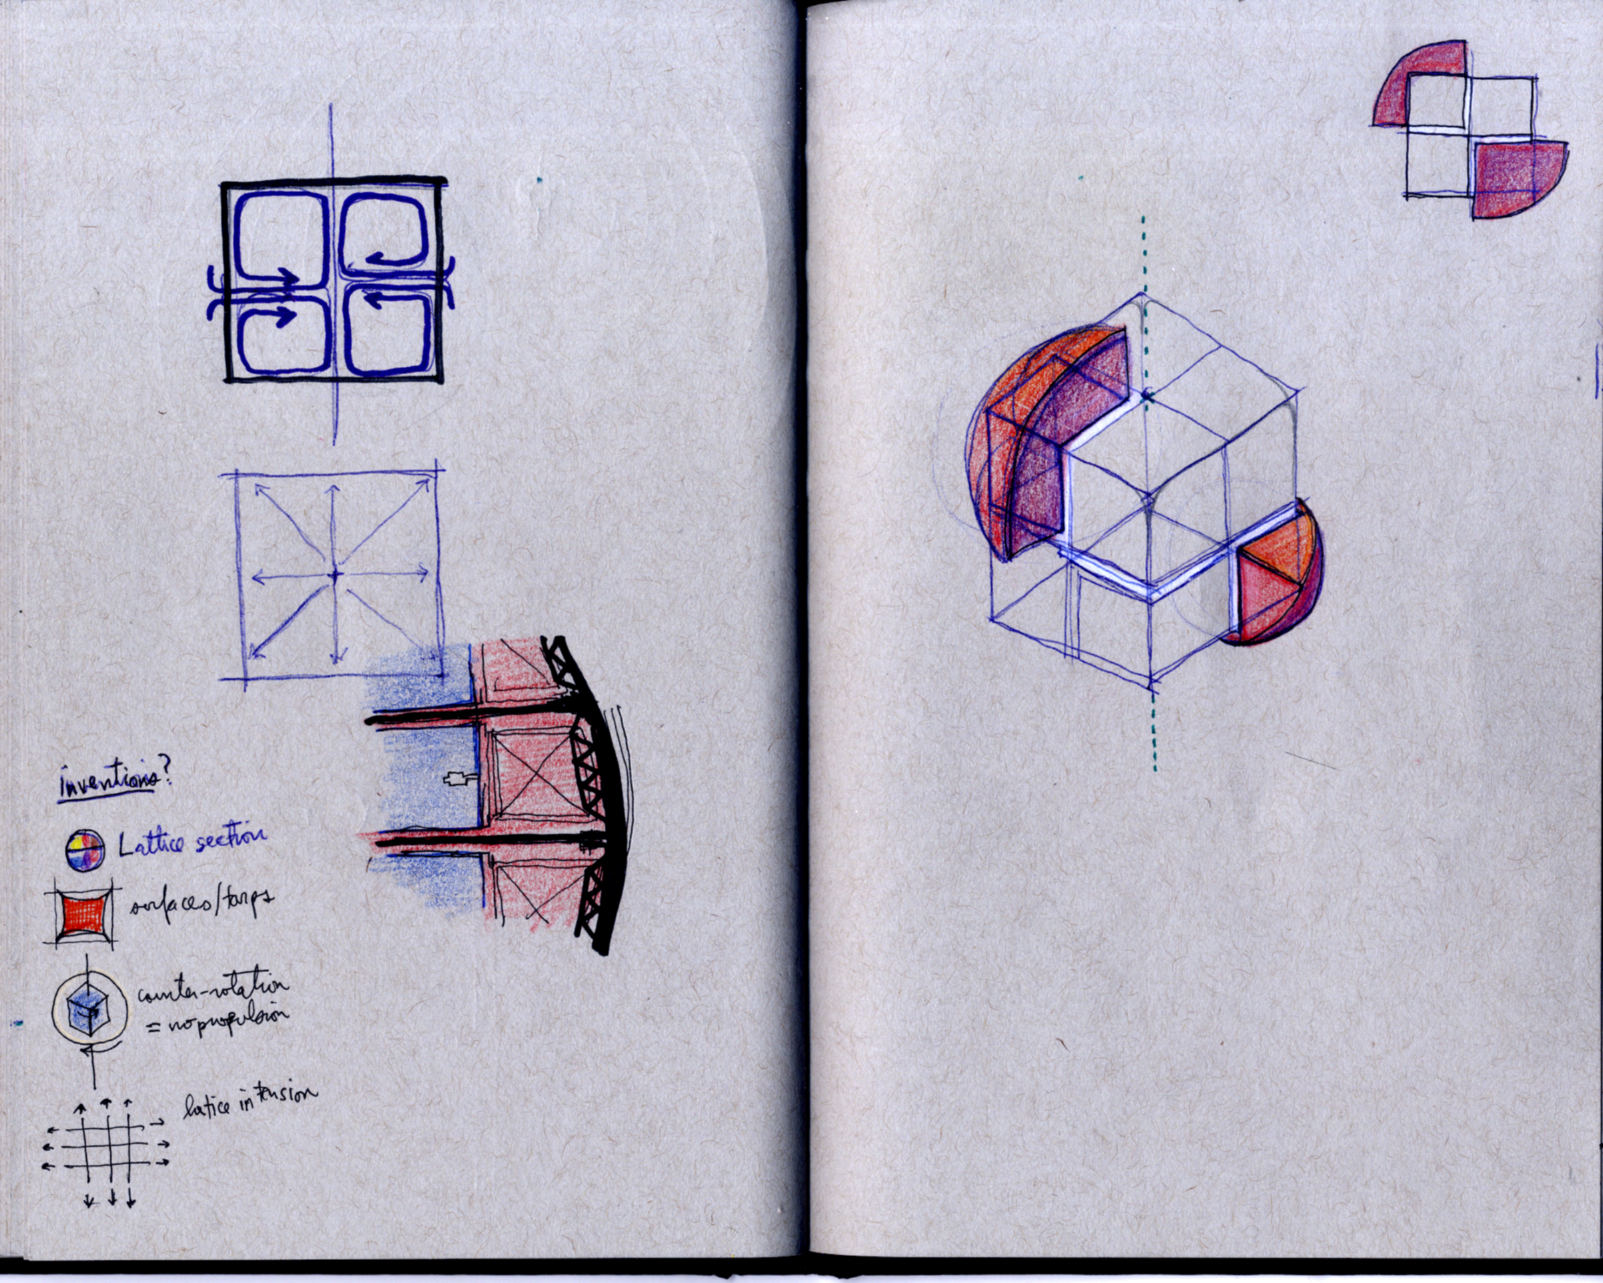 inventions?
Lattice section
surfaces/tarps
counter-rotation
= no propulsion
latice in tension